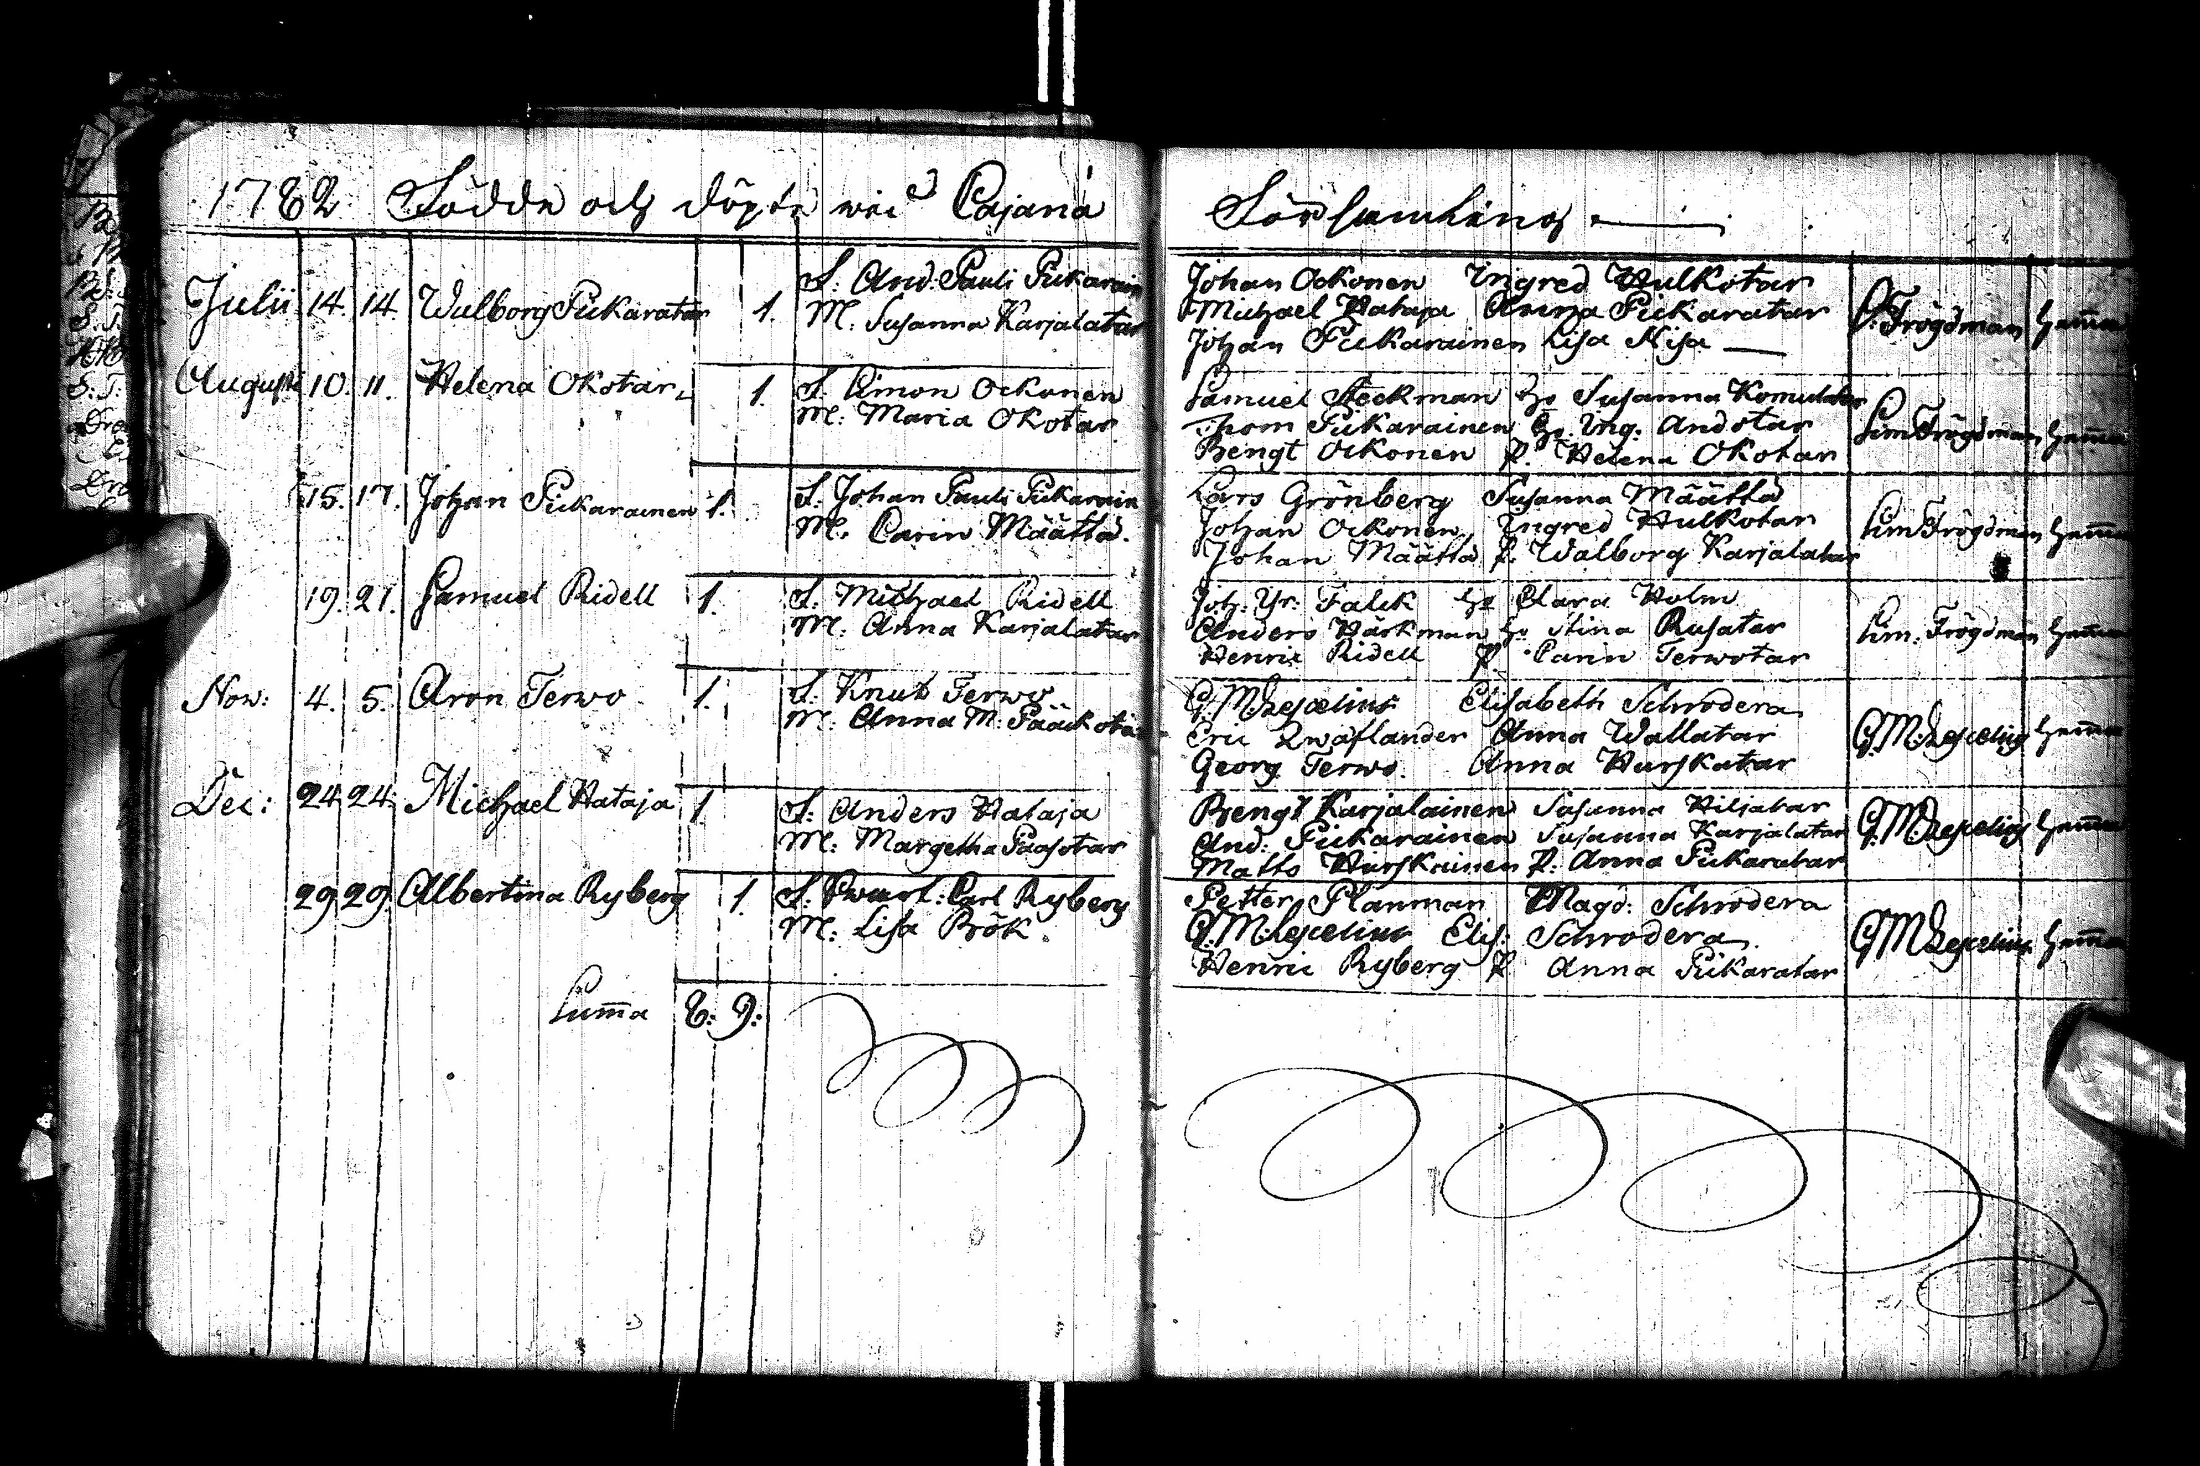 1782 Födde och döpte wid Cajana Församling
Julii 14. 14. Walborg Pikaratar 1. F. And. Pauli Pikarain
M. Susanna Karjalatar
Johan Ockonen Ingred Hulkotar
Michael Hataja Anna Pikaratar
Johan Pikarainen Lisa Nisa
Frögdman Hemma
Augusti 10. 11. Helena Okotar 1. F. Simon Ockonen
M: Maria Okotar
Samuel Steckman Hu Susanna Komulatar
Thom Pikarainen Hu. Ing: Andotar
Bengt Ockonen P. Helena Okotar
Sim Frögdman Hemma
15. 17. Johan Pikarainen 1. F. Johan Pauli Pikarain
M. Carin Määttä.
Lars Grönberg Susanna Määttä
Johan Ockonen Ingred Hulkotar
Johan Määttä P. Walborg Karjalatar
Sim Frögdman Hemma
19. 21. Samuel Ridell 1. F. Michael Ridell
M. Anna Karjalatar
Joh: Gr: Falck Hu Clara Holm
Anders Härkman Hu Stina Rusatar
Henric Ridell P. Carin Terwotar
Sim: Frögdman Hemma
Nov: 4. 5. Aron Terwo 1. F. Knut Terwo
M. Anna M: Pääckötar
G. M. Zepelius Elisabeth Schrodera
Eric Qwaflander Anna Wallatar
Georg Terwo. Anna Hurskatar
G. M. Zepelius Hemma
Dec: 24 24. Michael Hataja 1 F: Anders Hataja
M: Margetha Paasotar
Bengt Karjalainen Susanna Hiljatar
And: Pikarainen Susanna Karjalatar
Matts Hurskainen P: Anna Pikaratar
G. M. Zepelius Hemma
29 29. Albertina Ryberg 1. F. Swarf: Carl Ryberg
M: Lisa Rök.
Petter Planman Magd: Schrodera
G. M. Zepelius Elis: Schrodera
Henric Ryberg P. Anna Pikaratar
G. M. Zepelius Hemma
Summa 8: 9: